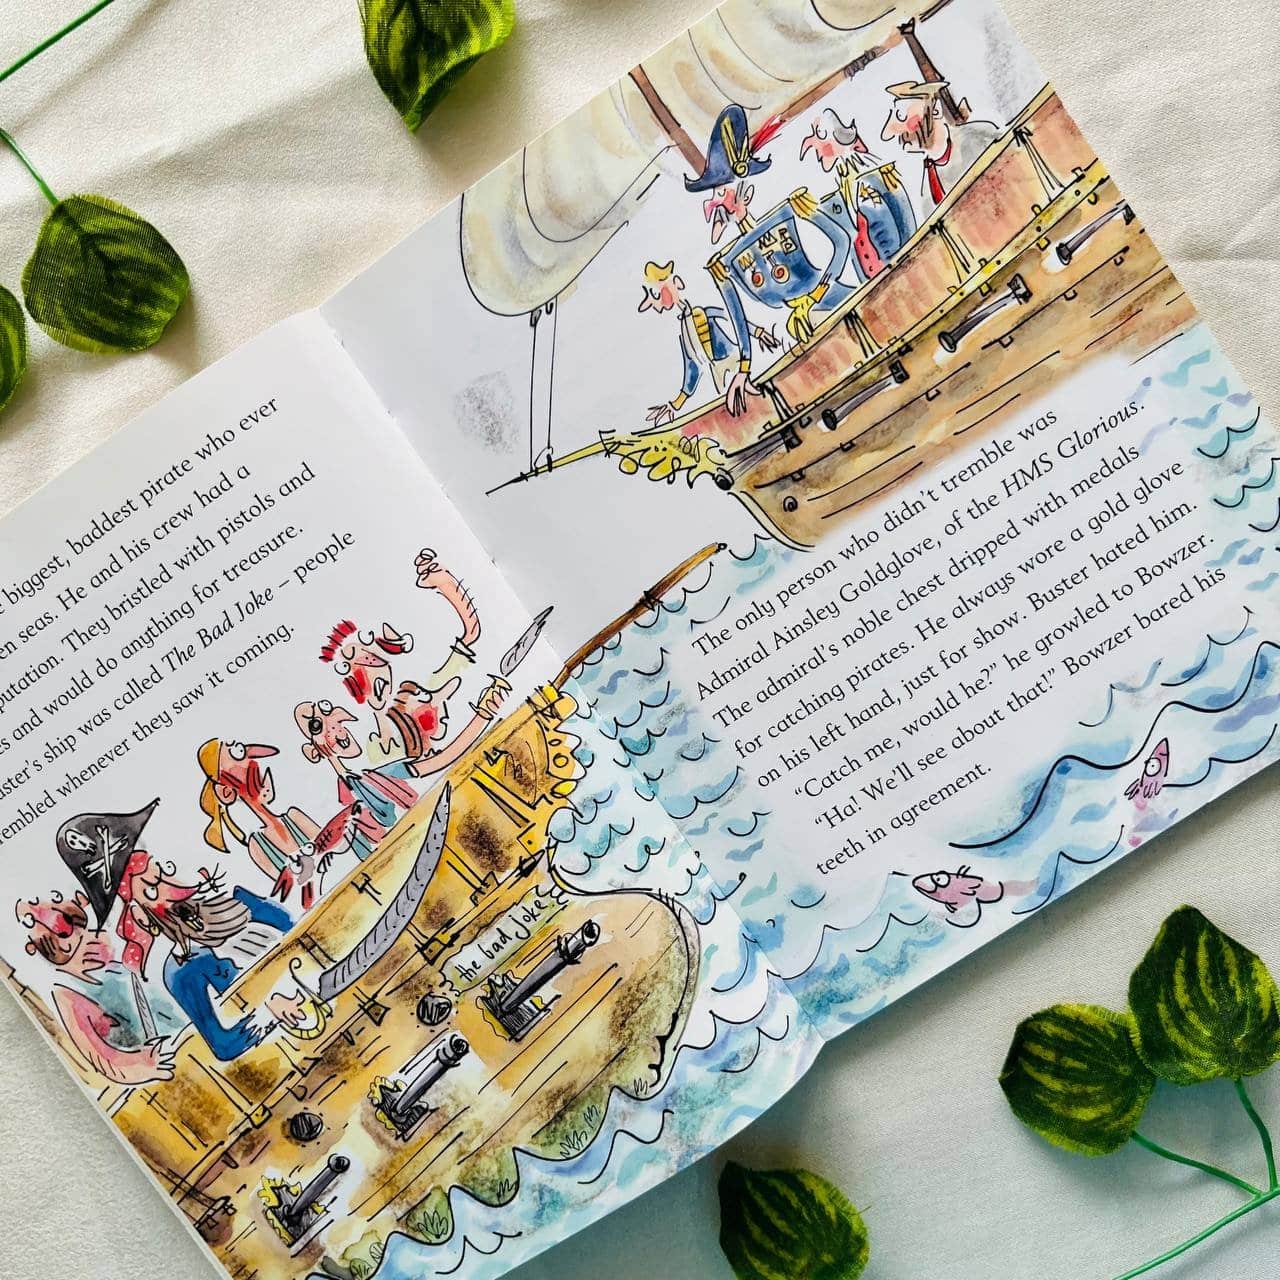 biggest, baddest pirate who ever
seas. He and his crew had a
They bristled with pistols and
and would do anything for treasure.
ship was called The Bad Joke – people
whenever they saw it coming.
the bad joke
The only person who didn't tremble was
Admiral Ainsley Goldglove, of the HMS Glorious.
The admiral's noble chest dripped with medals
for catching pirates. He always wore a gold glove
on his left hand, just for show. Buster hated him.
“Catch me, would he?” he growled to Bowzer.
“Ha! We'll see about that!” Bowzer bared his
teeth in agreement.